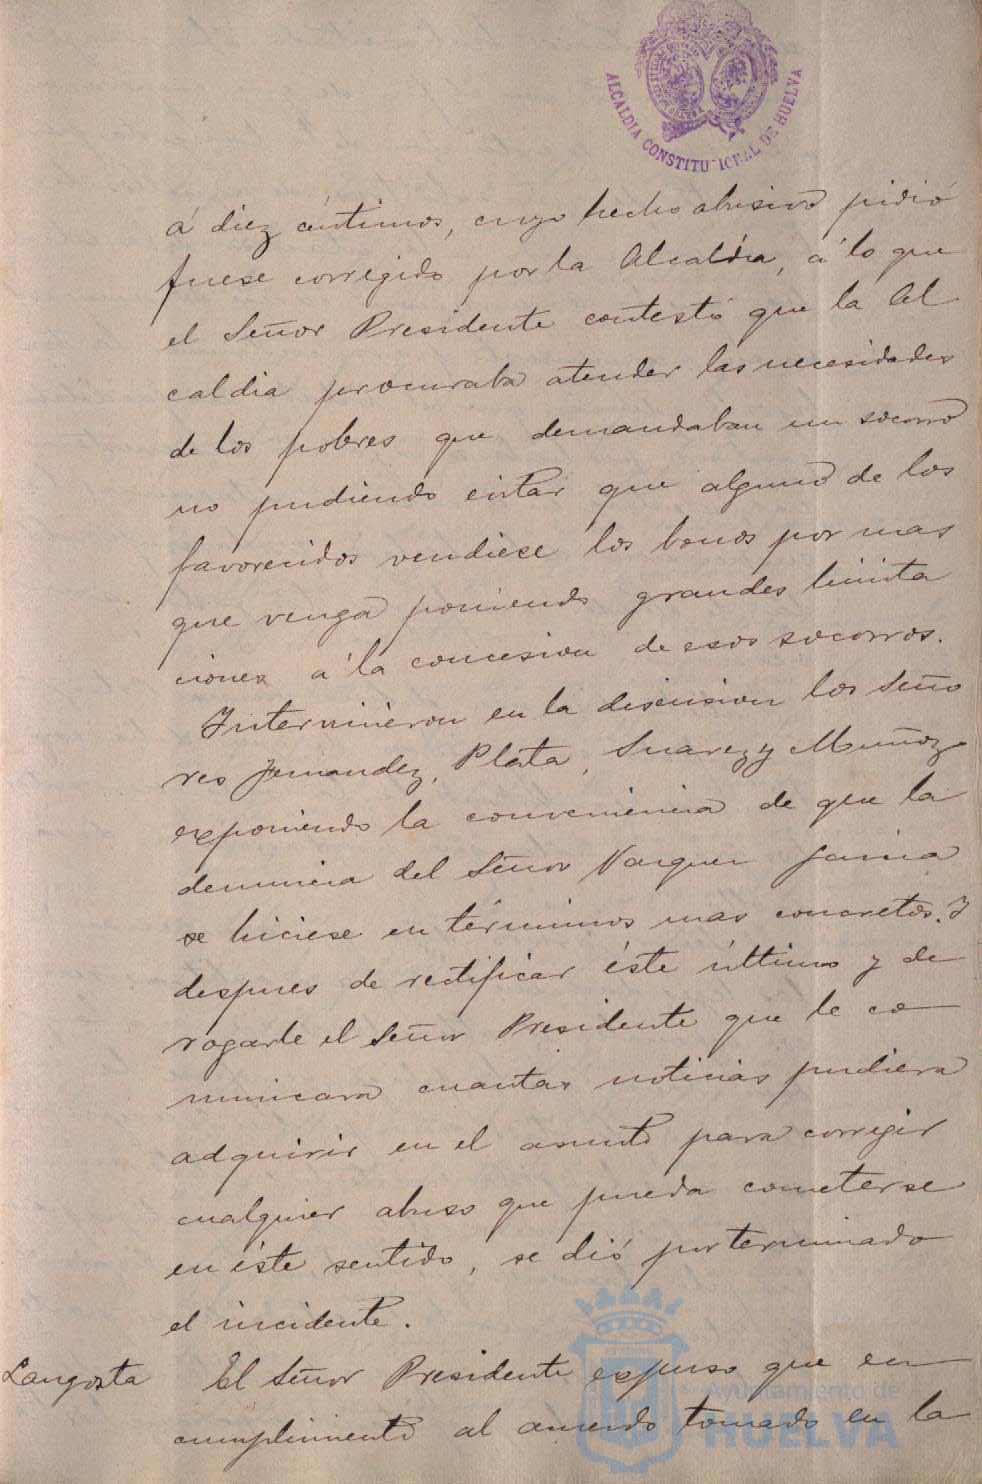 ALCALDIA CONSTITUCIONAL DE HUELVA
á diez céntimos, cuyo hecho abusivo pidió
fuese corregido por la Alcaldia, á lo que
el Señor Presidente contestó que la Al
caldia procuraba atender las necesidades
de los pobres que demandaban un socorro
no pudiendo evitar que alguno de los
favorecidos vendiese los bonos por mas
que venga poniendo grandes limita
ciones á la concesion de esos socorros.
Intervinieron en la discusion los Seño
res Fernandez, Plata, Suarez y Muñoz
exponiendo la conveniencia de que la
denuncia del Señor Vazquez
se hiciese en términos mas concretos. Y
despues de rectificar éste último y de
rogarle el Señor Presidente que le co
municara cuantas noticias pudiera
adquirir en el asunto para corregir
cualquier abuso que pueda cometerse
en éste sentido, se dió por terminado
el incidente.
Langosta El Señor Presidente expuso que en
cumplimiento al acuerdo tomado en la
Ayuntamiento de
HUELVA